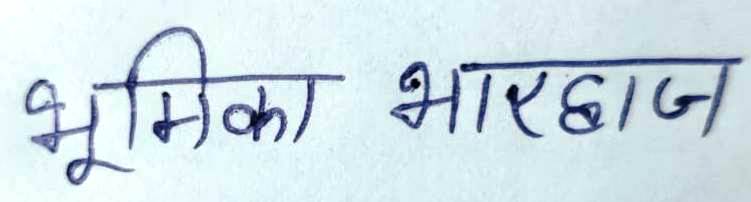 भूमिका भारद्वाज